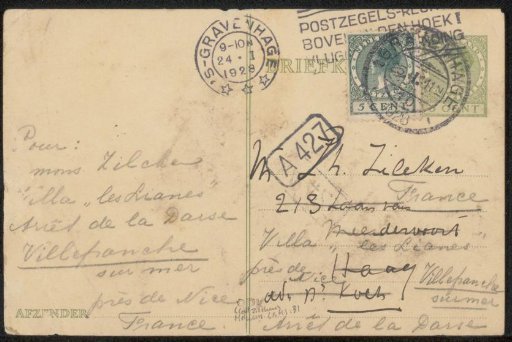 'S-GRAVENHAGE
9-10N
24·I
1928
POSTZEGELS RECHTS
BOVEN IN DEN HOEK!
BRIEFK
5 CENT
CENT
A 427
Pour:
mons Zilcken
Villa "les Lianes"
Arrêt de la Darse
Villefranche
sur mer
près de Nice
France
AFZENDER
M Ph. Zilcken
France
Laan van
Villa Meerdervoort
"les Lianes"
près de Nice Haag
Villefranche
sur mer
Arrêt de la Darse